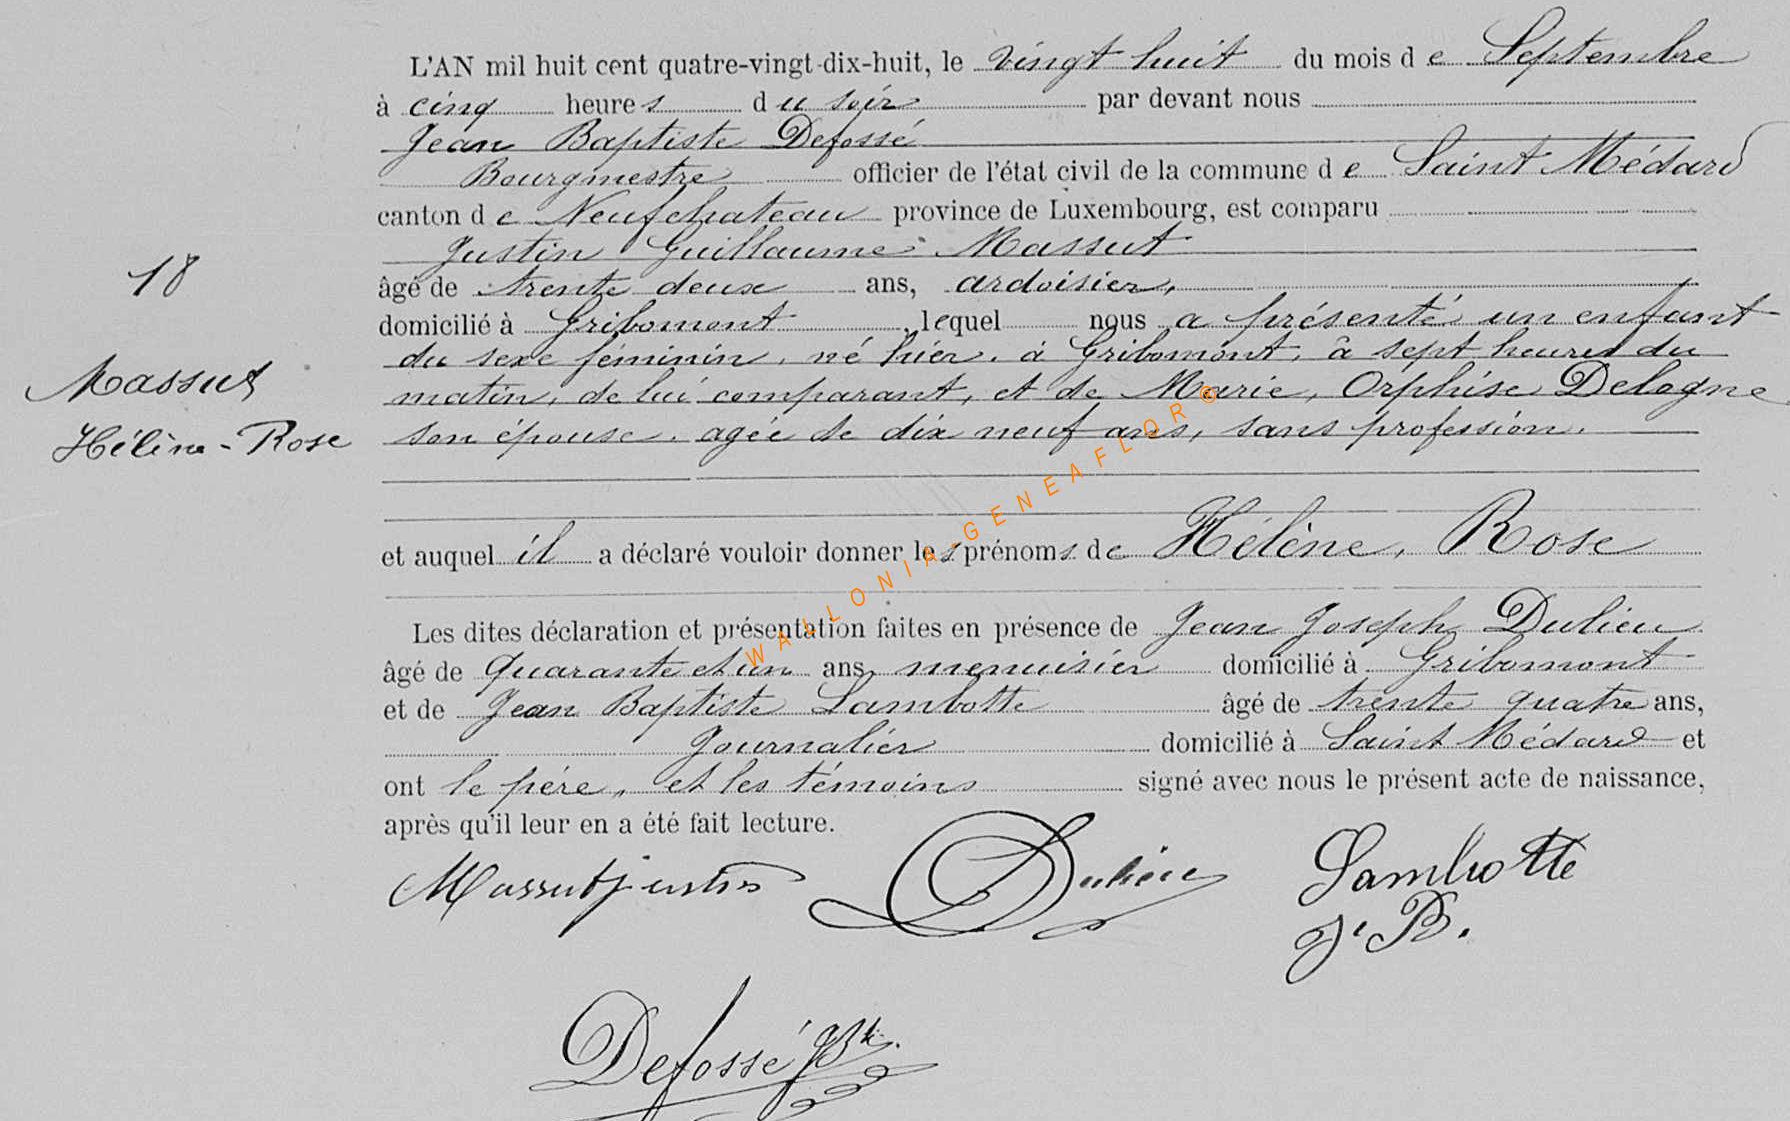 L'AN mil huit cent quatre-vingt-dix-huit, le vingt huit du mois de Septembre
à cinq heures du soir par devant nous
Jean Baptiste Defossé
Bourgmestre officier de l'état civil de la commune de Saint Médard
canton de Neufchateau province de Luxembourg, est comparu
Justin Guillaume Massut
âgé de trente deux ans, ardoisier,
domicilié à Gribomont, lequel nous a présenté un enfant
du sexe féminin, né hier, à Gribomont, à sept heures du
matin, de lui comparant, et de Marie, Orphise Delogne
son épouse, agée de dix neuf ans, sans profession.
18
Massut
Hélène-Rose
et auquel il a déclaré vouloir donner les prénoms de Hélène, Rose
Les dites déclaration et présentation faites en présence de Jean Joseph Dulieu
âgé de quarante et un ans menuisier domicilié à Gribomont
et de Jean Baptiste Lambotte âgé de trente quatre ans,
Journalier domicilié à Saint Médard et
ont le père, et les témoins signé avec nous le présent acte de naissance,
après qu'il leur en a été fait lecture.
Massut justin Dulieu Lambotte
J. B.
Defossé JBte.
WALLONIA-GENEAFLOR©